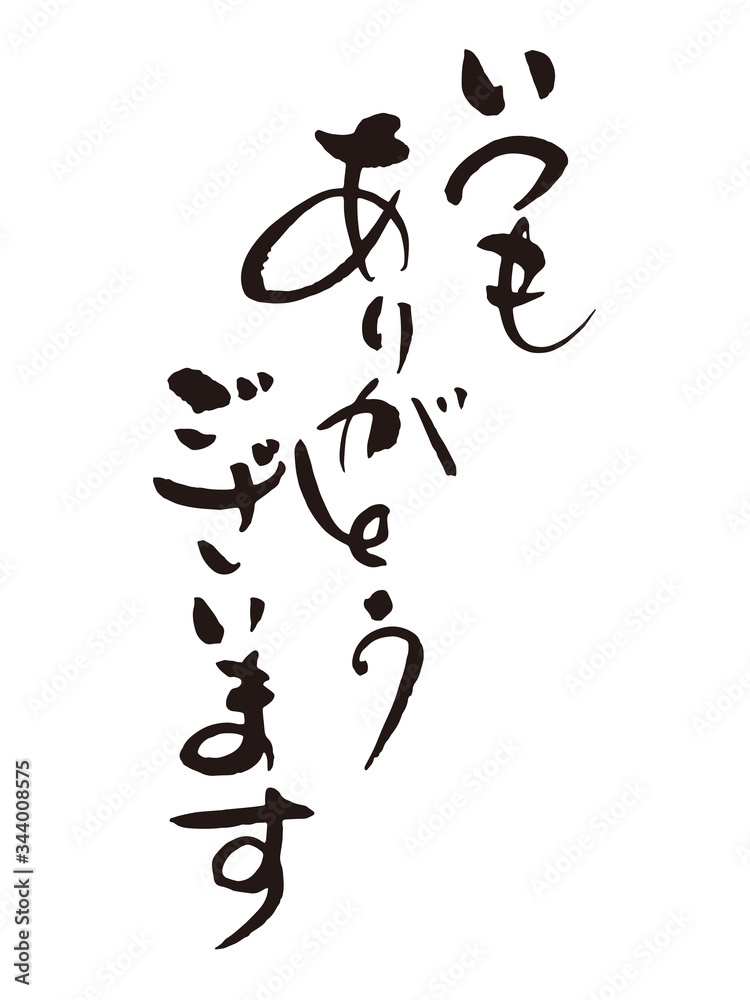 いつも
ありがとう
ございます
Adobe Stock | #344008575